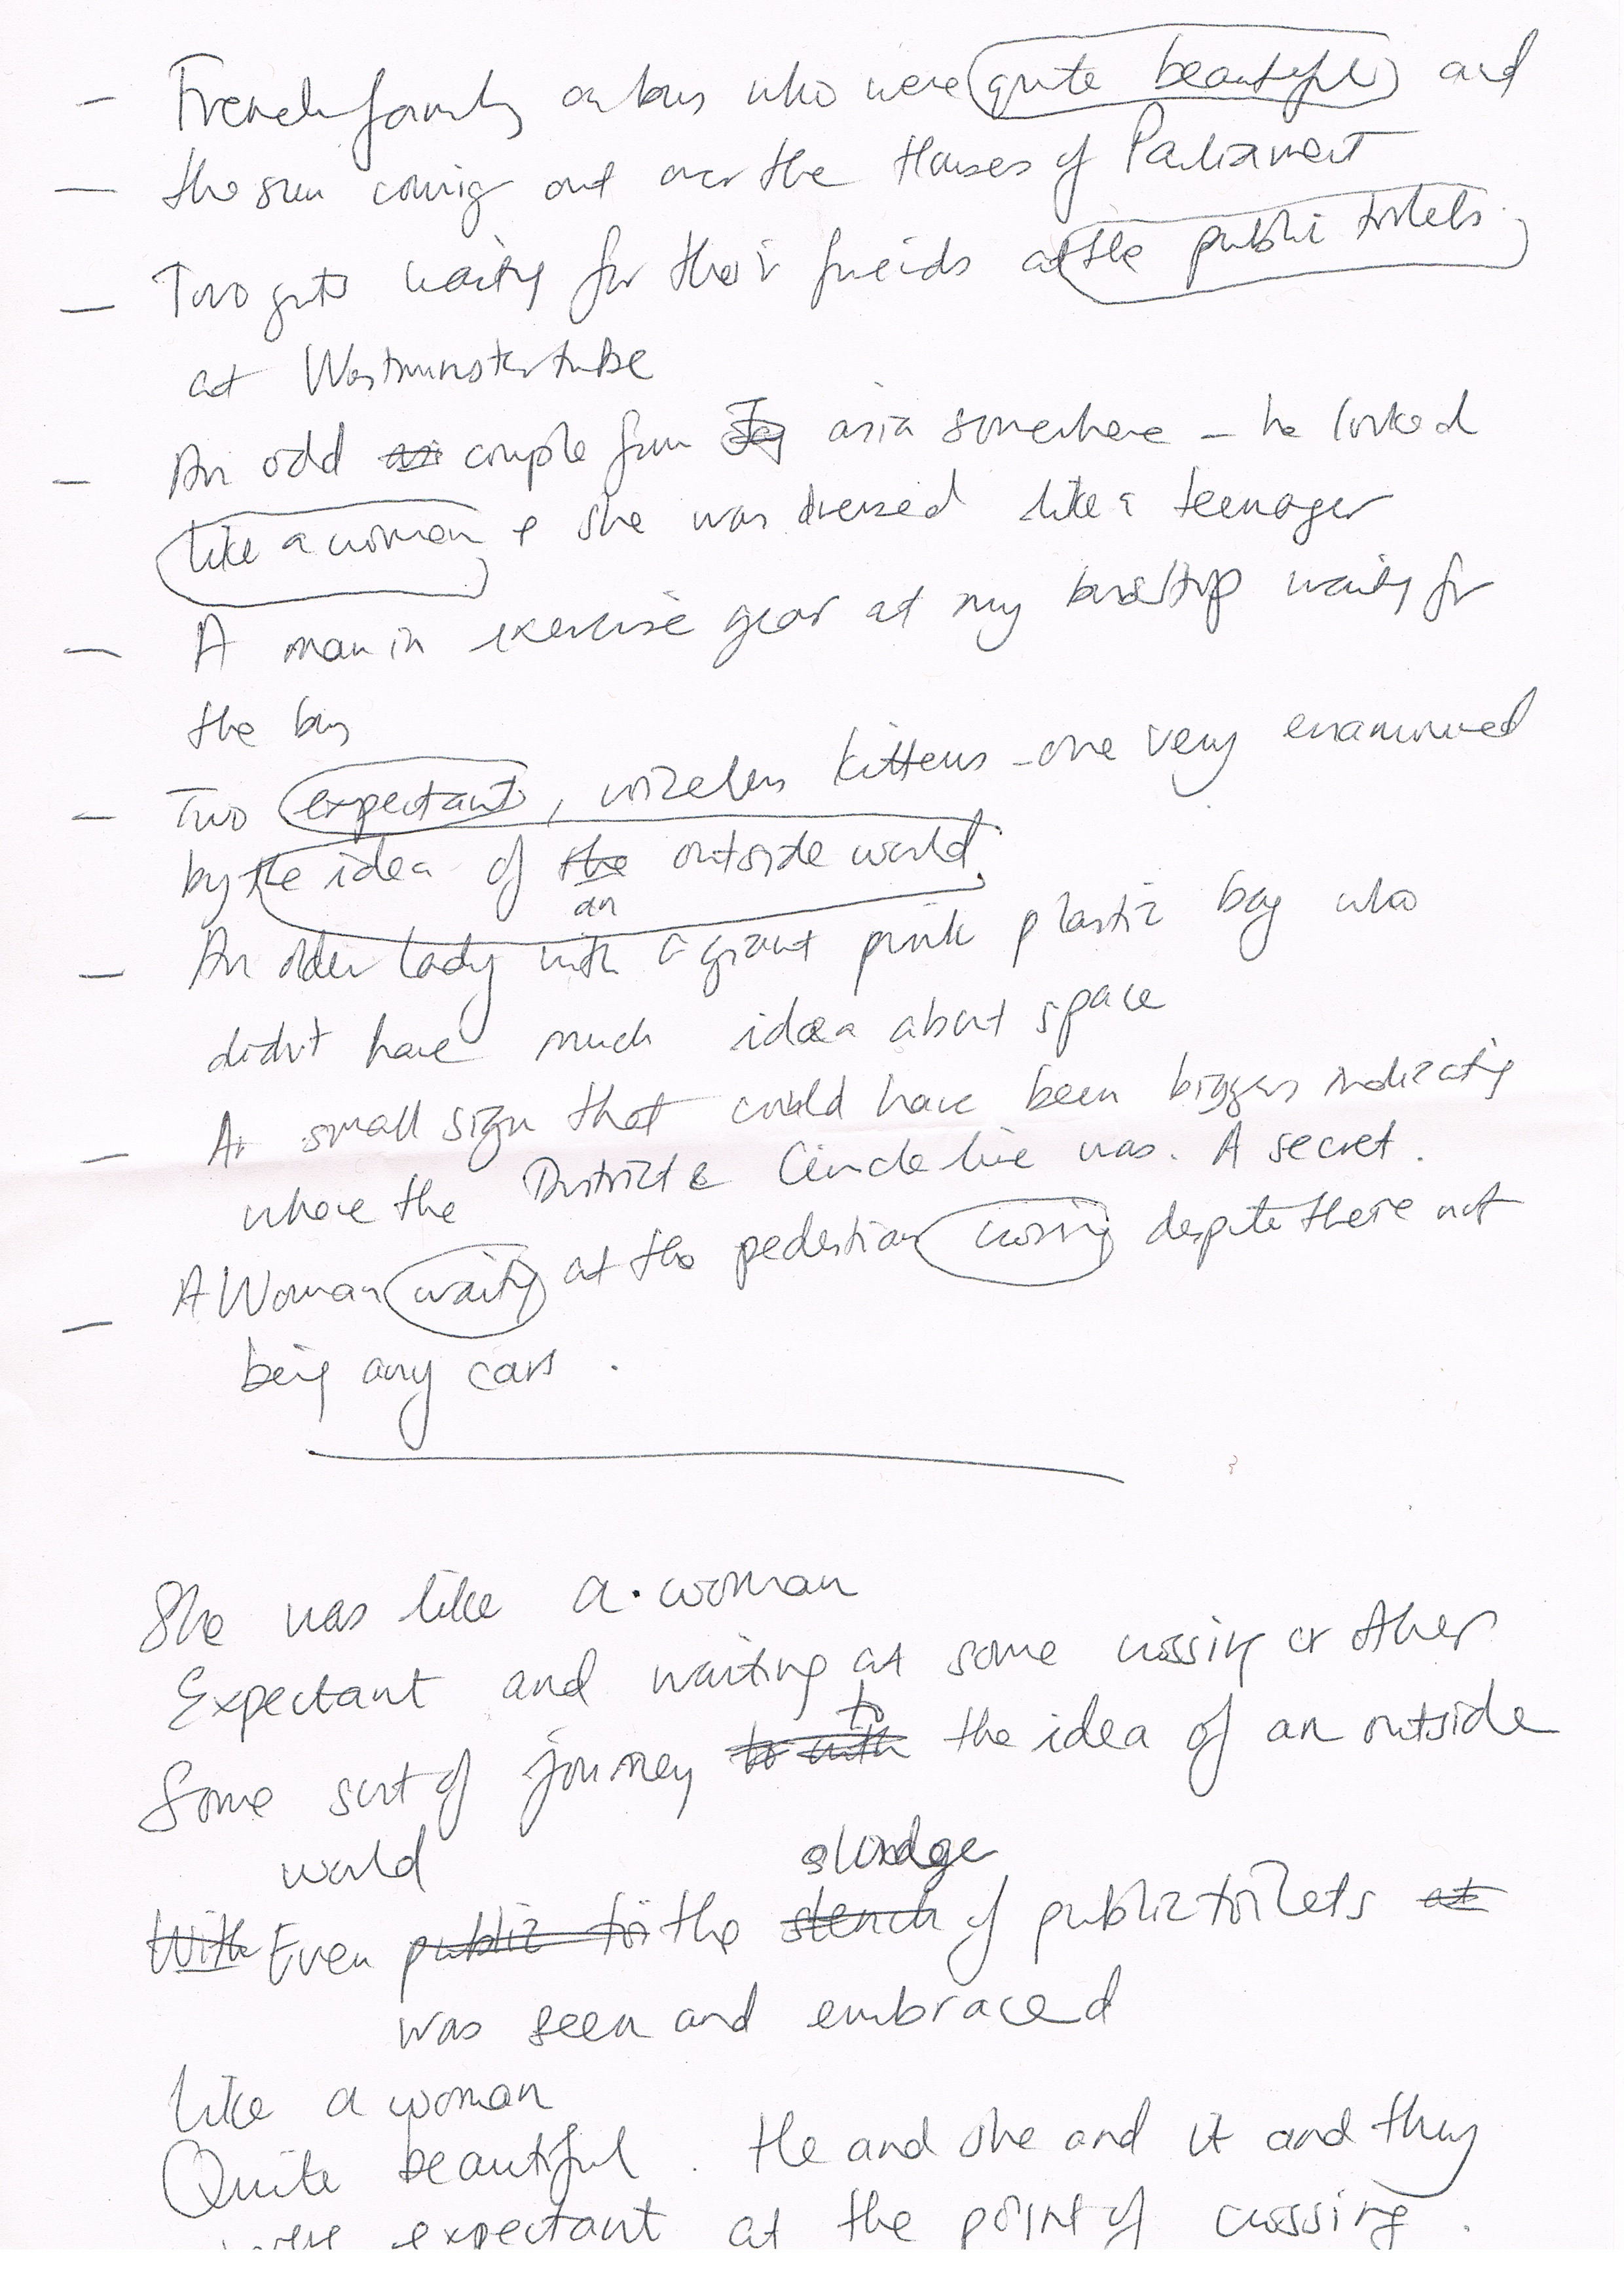 - French family on bus who were quite beautiful and
- the sun coming out over the Houses of Parliament
- Two waiting for their friends at the public toilets
at Westminster tube
- An odd couple from asia somewhere - he looked
like a woman & she was dressed like a teenager
- A man in exercise gear at my bus stop waiting for
the bus
- Two expectant, voiceless kittens - one very enamoured
by the idea of the outside world
an
- An older lady with a giant pink plastic bag who
didn't have much idea about space
- A small sign that could have been bigger indicating
where the District & Circle line was. A secret.
- A Woman waiting at the pedestrian crossing despite there not
being any cars.
She was like a woman
Expectant and waiting at some crossing or other
to
Some sort of journey to with the idea of an outside
world
sludge
With Even public toi the stench of public toilets at
was seen and embraced
Like a woman
Quite beautiful. He and she and it and they
were expectant at the point of crossing.